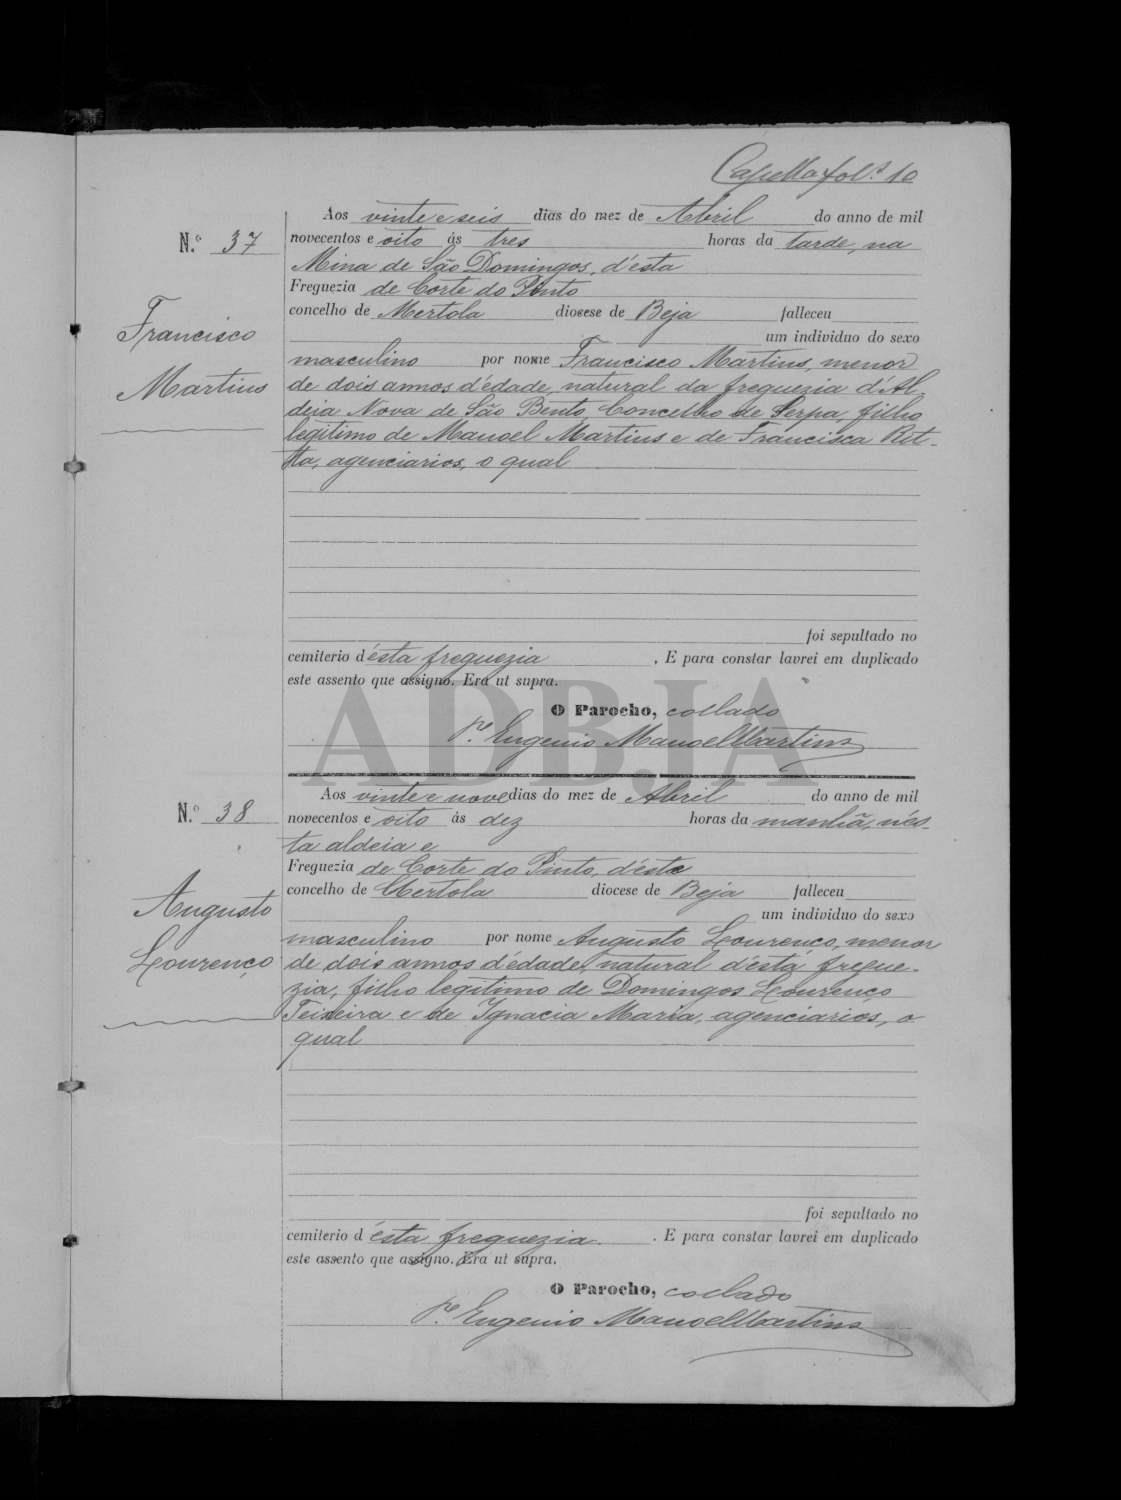 Capella fol.s 10
Aos vinte e seis dias do mez de Abril do anno de mil
N.º 37 novecentos e oito ás tres horas da tarde, na
Mina de São Domingos, d'ésta
Freguezia de Corte do Pinto
concelho de Mertola diocese de Beja falleceu
Francisco um individuo do sexo
masculino por nome Francisco Martins, menor
Martins de dois annos d'édade, natural da freguezia d'Al-
deia Nova de São Bento, Concelho de Serpa, filho
legitimo de Manoel Martins e de Francisca Rit-
ta, agenciarios, o qual
foi sepultado no
cemiterio d'ésta freguezia. E para constar lavrei em duplicado
este assento que assigno. Era ut supra.
O Parocho, collado
P.e Eugenio Manoel Martins
ADBJA
Aos vinte e nove dias do mez de Abril do anno de mil
N.º 38 novecentos e oito ás dez horas da manhã, n'és-
ta aldeia e
Freguezia de Corte do Pinto, d'éste
concelho de Mertola diocese de Beja falleceu
Augusto um individuo do sexo
masculino por nome Augusto Lourenço, menor
Lourenço de dois annos d'édade, natural d'ésta fregue-
zia, filho legitimo de Domingos Lourenço
Teixeira e de Ignacia Maria, agenciarios, o
qual
foi sepultado no
cemiterio d'ésta freguezia. E para constar lavrei em duplicado
este assento que assigno. Era ut supra.
O Parocho, collado
P.e Eugenio Manoel Martins